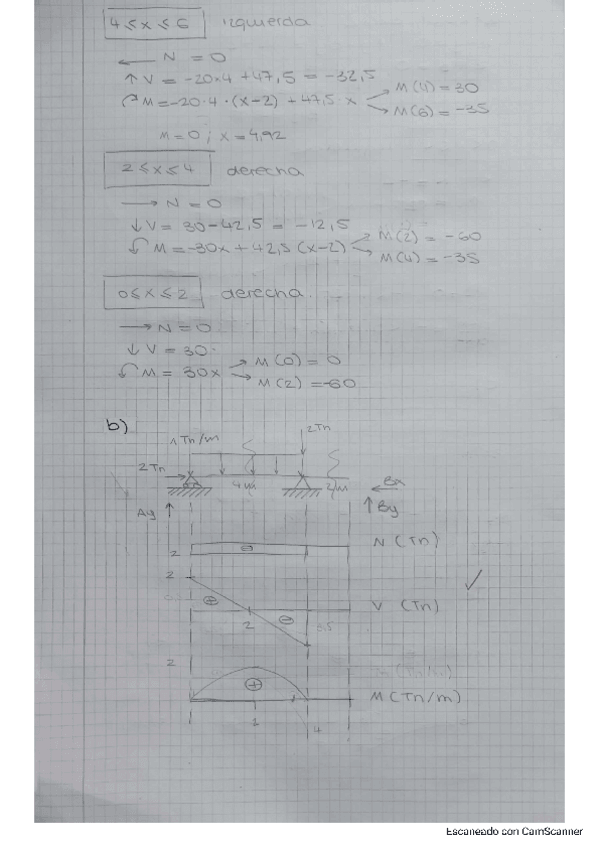 4 ≤ x ≤ 6 izquierda
← N = 0
↑ V = -20·4 + 47,5 = -32,5
M = -20·4·(x-2) + 47,5·x M(4) = 30
M(6) = -35
M = 0 ; x = 4,92
2 ≤ x ≤ 4 derecha
→ N = 0
↓ V = 30 - 42,5 = -12,5
M = -30x + 42,5 (x-2) M(2) = -60
M(4) = -35
0 ≤ x ≤ 2 derecha.
→ N = 0
↓ V = 30.
M = 30x M(0) = 0
M(2) = -60
b)
2Tn
1 Tn/m
2Tn
4m 2m Bx
Ay ↑ ↑ By
N (Tn)
2 ⊖
2
⊕ ⊖ V (Tn) ✓
2
2
⊕ M (Tn/m)
2 4
Escaneado con CamScanner